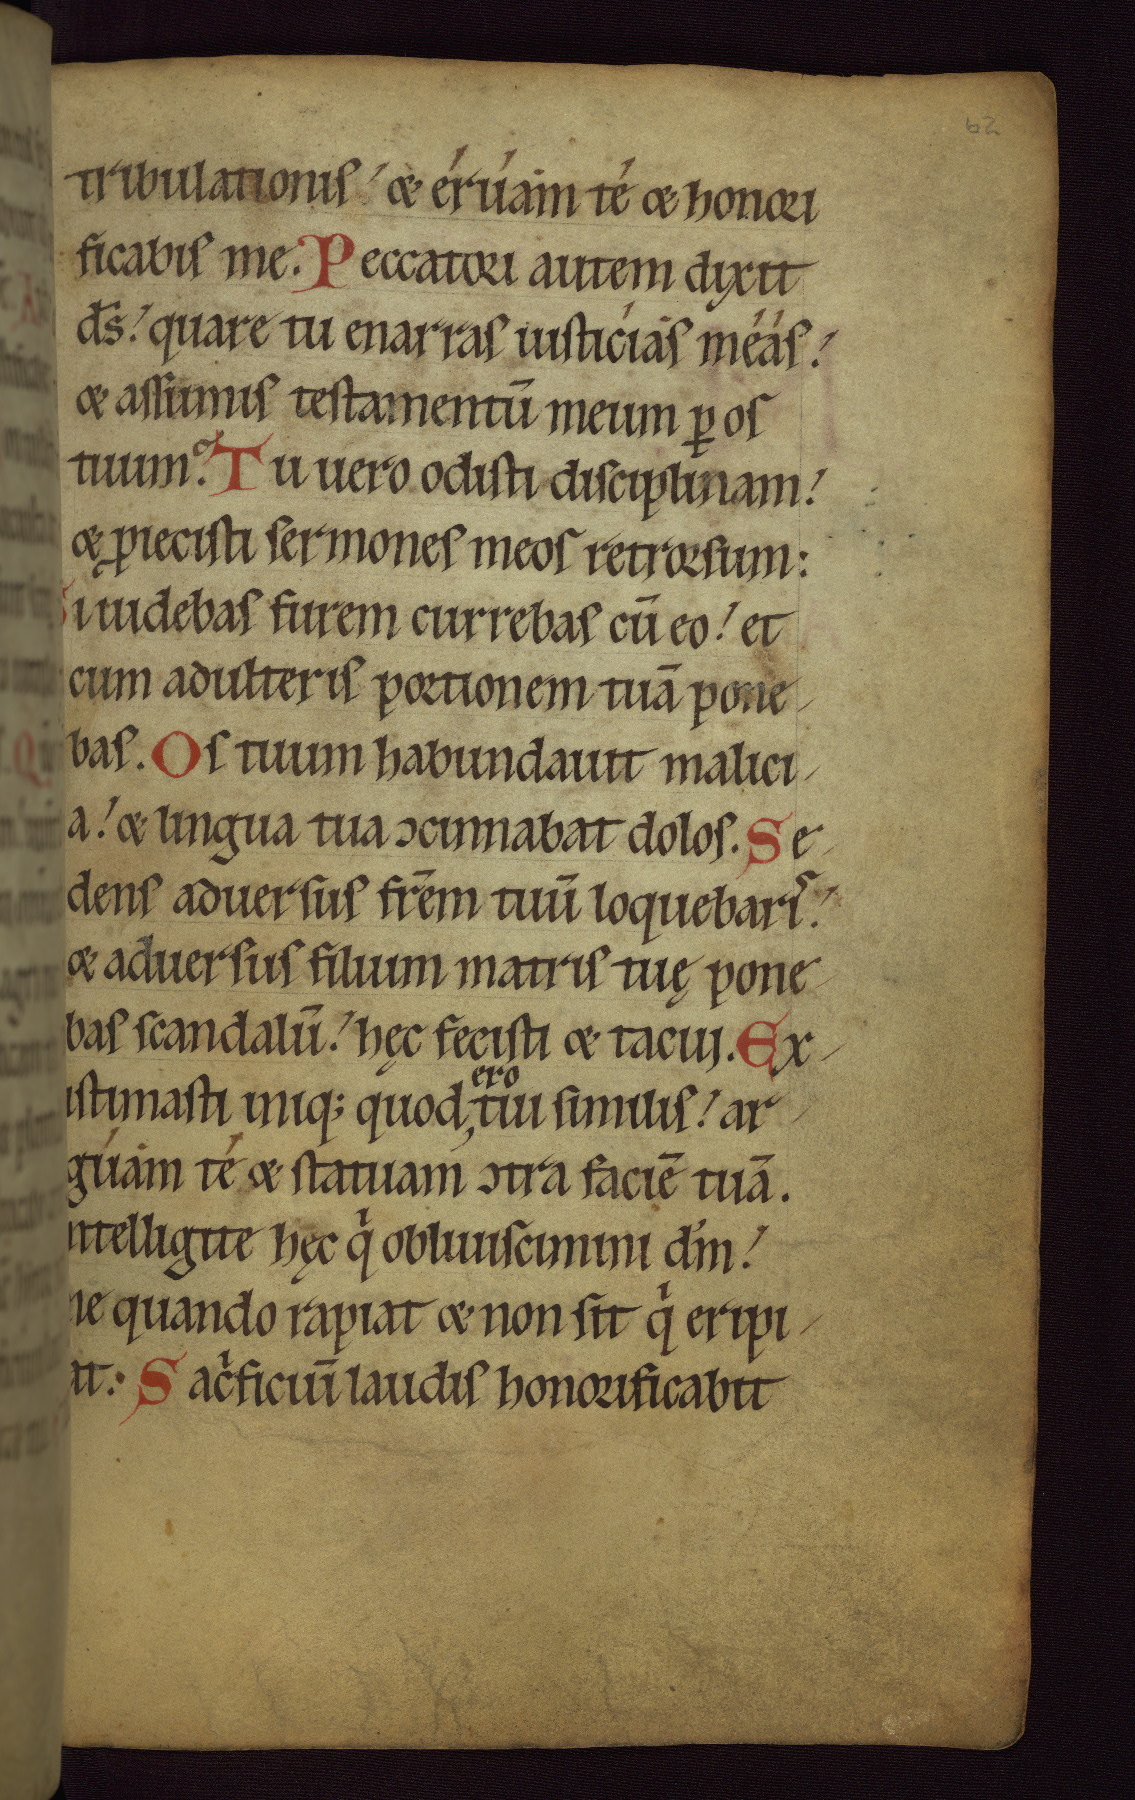 62
tribulationis! & éruam té & honori
ficabis me. Peccatori autem dixit
d̅s! quare tu enarras iusticias méás!
& assumis testamentū meum ꝑ os
tuum. Tu uero odisti disciplinam!
& ꝓiecisti sermones meos retrorsum:
Si uidebas furem currebas cū eo! et
cum adulteris portionem tuā pone-
bas. Os tuum habundauit malici-
a! & lingua tua ɔcinnabat dolos. Se-
dens aduersus frēm tuū loquebaris!
& aduersus filium matris tuę pone-
bas scandalū! hęc fecisti & tacui. Ex-
istimasti iniq; quod, ero tui similis! ar-
guam té & statuam ɔtra faciē tuā.
ntelligite hęc qͥ obliuiscimini dm̅!
ne quando rapiat & non sit qͥ eripi-
at: Sacͥficiuī laudis honorificabit